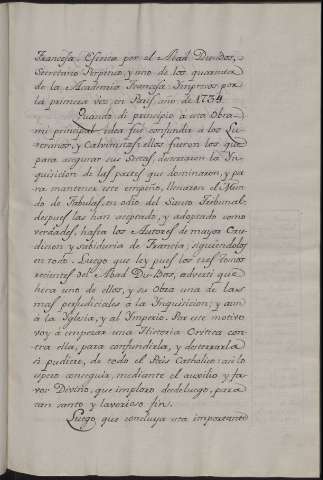 Francesa: Escrita por el Abad Du-Bos,
Secretario Perpetuo, y uno de los quarenta
de la Academia Francesa: Impreso por
la primera vez en Paris, año de 1734.
Quando di principio à esta Obra
mi principal idea fue confundir a los Lu-
teranos, y Calvinistas; ellos fueron los que
para asegurar sus Sectas, desterraron la Yn-
quisicion de las partes que dominaron, y pa-
ra mantener este empeño, llenaron el Mun-
do de Fabulas, en odio del Santo Tribunal:
despues las han aceptado, y adoptado como
verdades, hasta los Autores de mayor Eru-
dicion y sabiduria de Francia, siguiendolos
en todo. Luego que lei pues los tres tomos
recientes del Abad Du-Bos, adverti que
hera uno de ellos, y su Obra una de las
mas perjudiciales à la Inquisicion; y aun
à la Yglesia, y al Ymperio. Por este motivo
voy à empezar una Historia Critica con-
tra ella, para confundirla, y desterrarla
si pudiere, de todo el Pais Catholico: asi lo
espero conseguir, mediante el auxilio y fa-
vor Divino, que imploro desde luego, para
tan santo y laborioso fin.
Luego que concluya esta importante